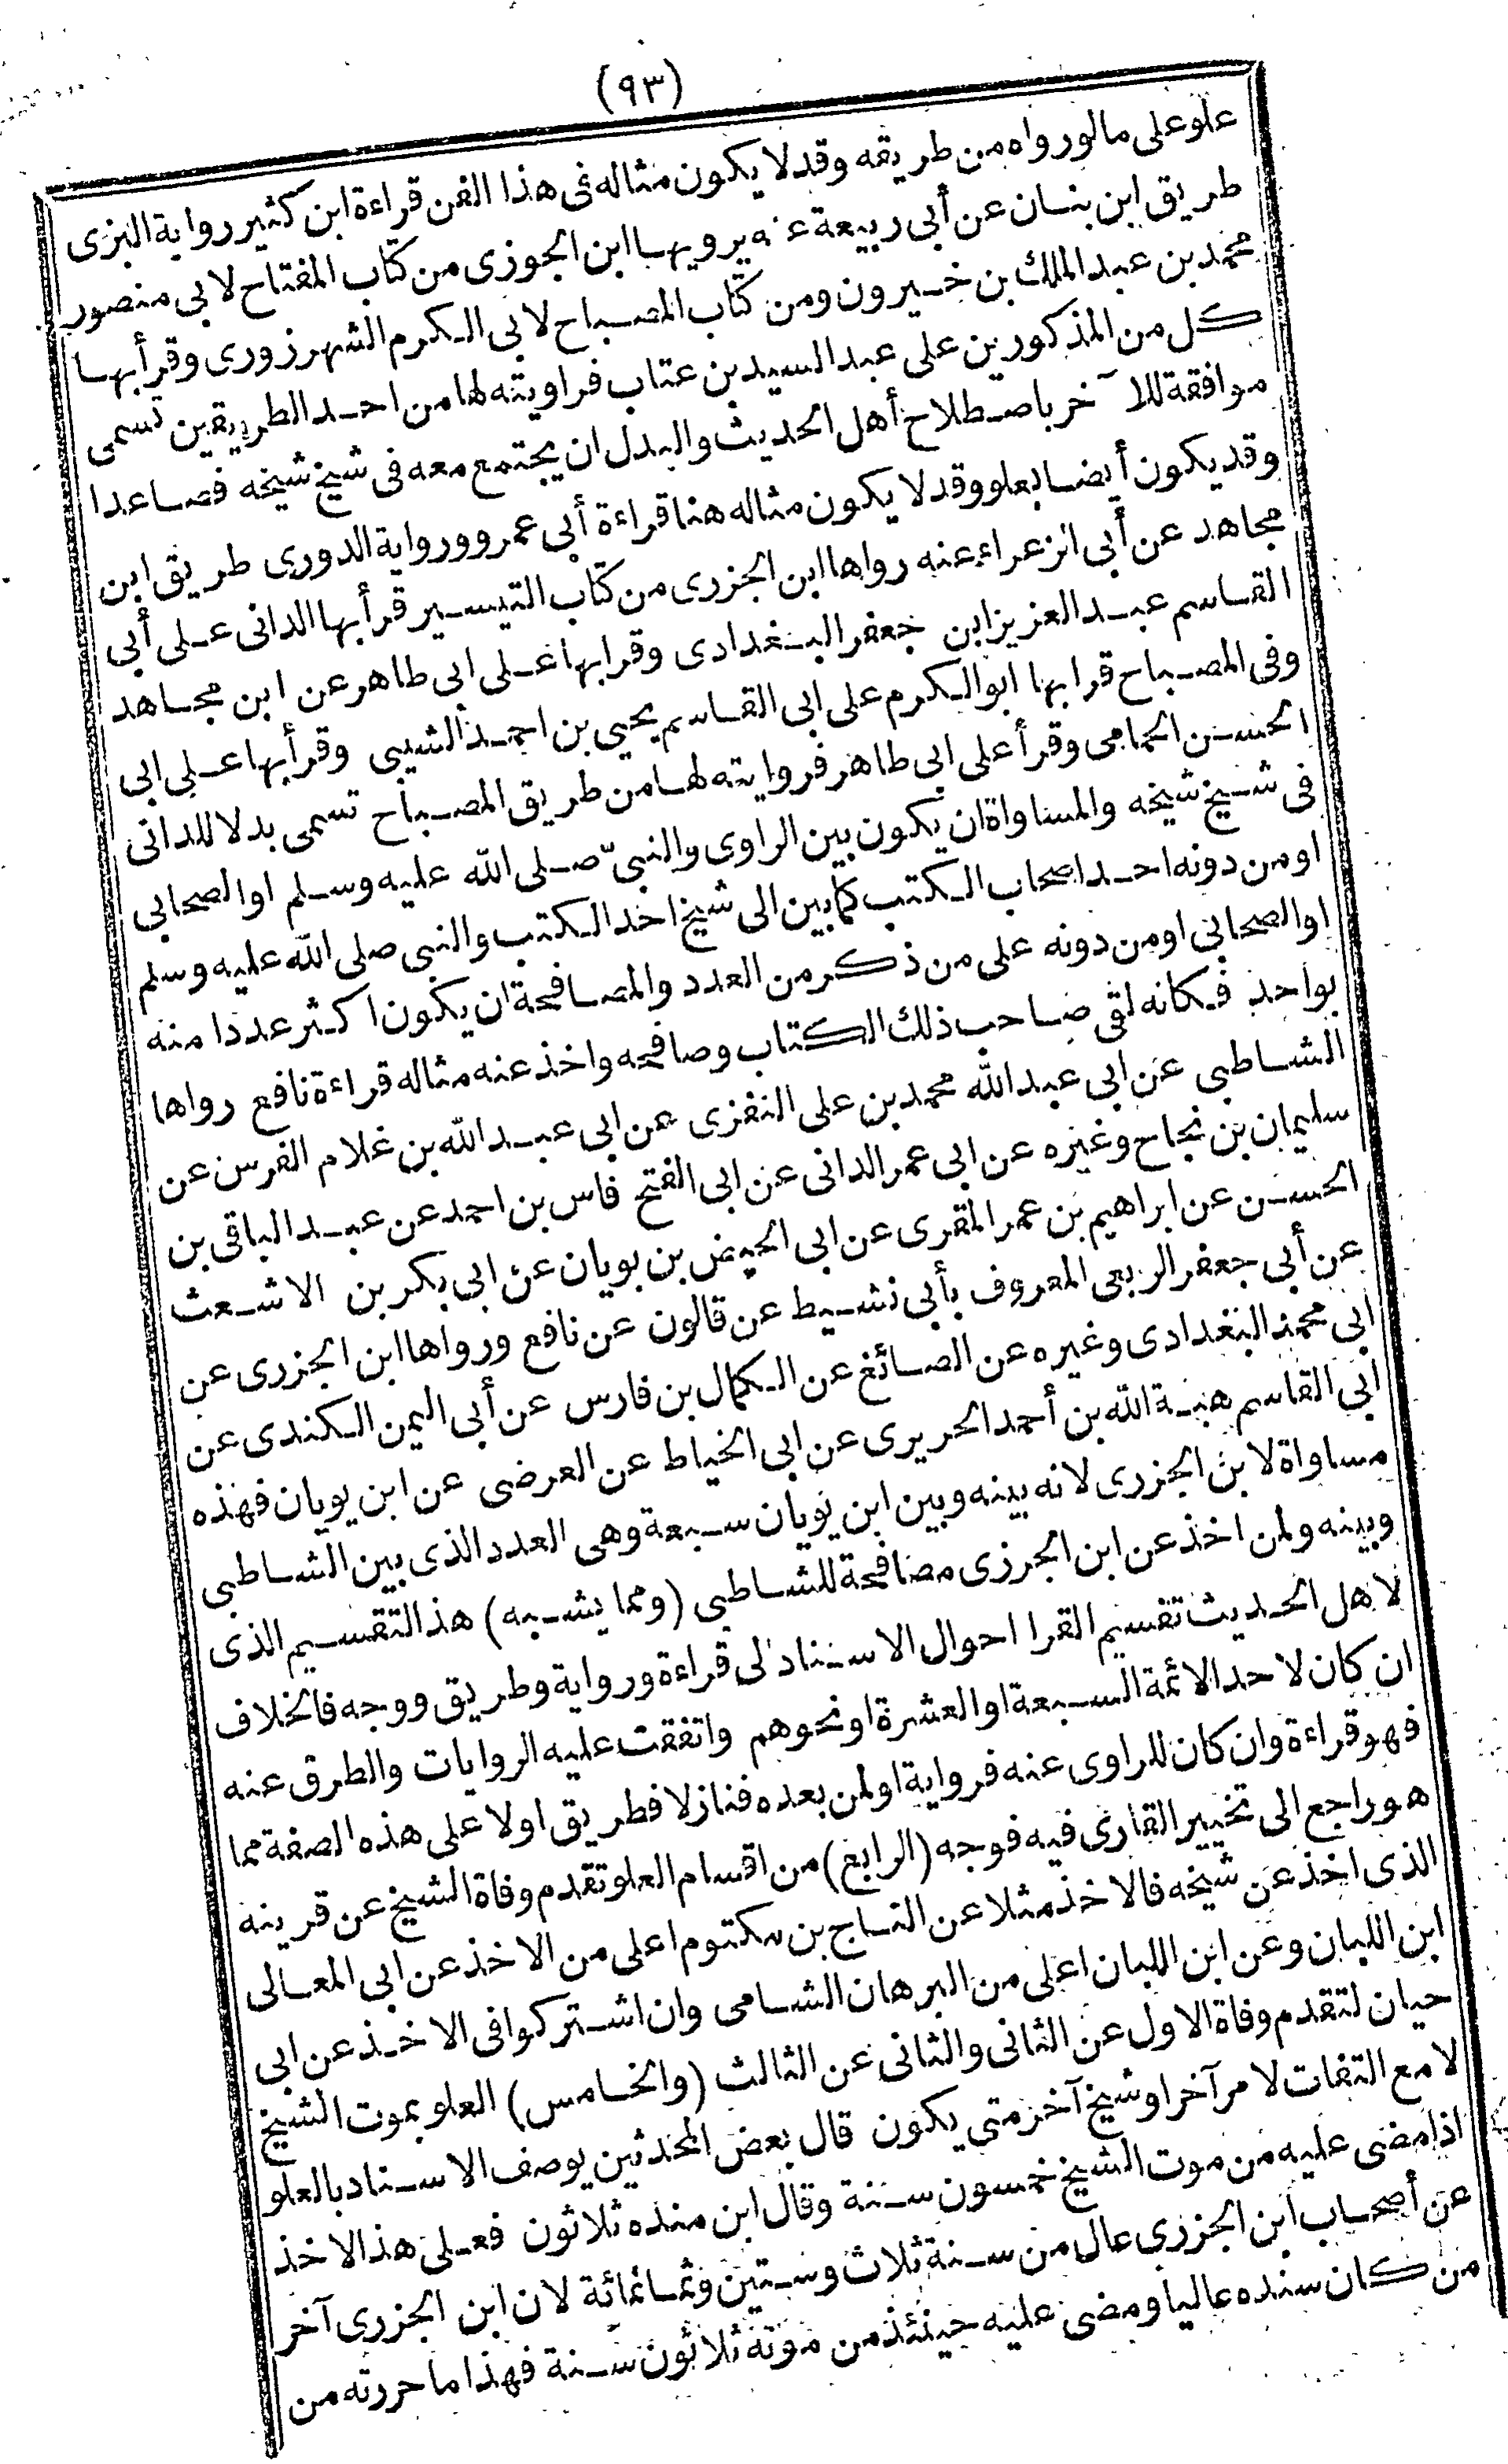 (٩٣)
علو على مالو رواه من طريقه وقد لا يكون مثاله فى هذا الفن قراءة ابن كثير رواية البزى
طريق ابن بنان عن أبى ربيعة عنه يرويها ابن الجوزى من كتاب المفتاح لابى منصور
محمد بن عبد الملك بن خيرون ومن كتاب المصباح لابى الكرم الشهرزورى وقرأ بها
كل من المذكورين على عبد السيد بن عتاب فراويته لها من احد الطريقين تسمى
موافقة للآخر باصطلاح أهل الحديث والبدل ان يجتمع معه فى شيخ شيخه فصاعدا
وقد يكون أيضا بعلو وقد لا يكون مثاله هنا قراءة أبى عمرو ورواية الدورى طريق ابن
مجاهد عن أبى الزعراء عنه رواها ابن الجزرى من كتاب التيسير قرأ بها الدانى على أبى
القاسم عبد العزيز ابن جعفر البغدادى وقرا بها على ابى طاهر عن ابن مجاهد
وفى المصباح قرا بها ابو الكرم على ابى القاسم يحيى بن احمد الشيبى وقرأ بها على ابى
الحسن الحمامى وقرأ على ابى طاهر فروايته لها من طريق المصباح تسمى بدلا للدانى
فى شيخ شيخه والمساواة ان يكون بين الراوى والنبىّ صلى الله عليه وسلم او الصحابى
او من دونه احد اصحاب الكتب كما بين الى شيخ احد الكتب والنبى صلى الله عليه وسلم
او الصحابى او من دونه على من ذكر من العدد والمصافحة ان يكون اكثر عددا منه
بواحد فكانه لقى صاحب ذلك الكتاب وصافحه واخذ عنه مثاله قراءة نافع رواها
الشاطبى عن ابى عبد الله محمد بن على النفزى عن ابى عبد الله بن غلام الفرس عن
سليمان بن نجاح وغيره عن ابى عمر الدانى عن ابى الفتح فاس بن احمد عن عبد الباقى بن
الحسن عن ابراهيم بن عمر المقرى عن ابى الحيض بن بويان عن ابى بكر بن الاشعث
عن أبى جعفر الربعى المعروف بأبى نشيط عن قالون عن نافع ورواها ابن الجزرى عن
ابى محمد البغدادى وغيره عن الصائغ عن الكمال بن فارس عن أبى اليمن الكندى عن
ابى القاسم هبة الله بن أحمد الحريرى عن ابى الخياط عن العرضى عن ابن يويان فهذه
مساواة لابن الجزرى لانه بينه وبين ابن بويان سبعة وهى العدد الذى بين الشاطبى
وبينه ولمن اخذ عن ابن الجرزى مصافحة للشاطبى (ومما يشبه) هذ التقسيم الذى
لاهل الحديث تفسيم القرا احوال الاسناد الى قراءة ورواية وطريق ووجه فالخلاف
ان كان لاحد الائمة السبعة او العشرة او نحوهم واتفقت عليه الروايات والطرق عنه
فهو قراءة وان كان للراوى عنه فرواية او لمن بعده فنازلا فطريق اولا على هذه الصفة مما
هو راجع الى تخيير القارى فيه فوجه (الرابع) من اقسام العلو تقدم وفاة الشيخ عن قرينه
الذى اخذ عن شيخه فالاخذ مثلا عن التاج بن مكتوم اعلى من الاخذ عن ابى المعالى
ابن اللبان وعن ابن اللبان اعلى من البرهان الشامى وان اشتركوا فى الاخذ عن ابى
حيان لتقدم وفاة الاول عن الثانى والثانى عن الثالث (والخامس) العلو بموت الشيخ
لا مع التفات لامر آخر او شيخ آخر متى يكون قال بعض المحدثين يوصف الاسناد بالعلو
اذا مضى عليه من موت الشيخ خمسون سنة وقال ابن منده ثلاثون فعلى هذ الاخذ
عن أصحاب ابن الجزرى عال من سنة ثلاث وستين وثمانمائة لان ابن الجزرى آخر
من كان سنده عاليا ومضى عليه حينئذ من موته ثلاثون سنة فهذا ما حررته من